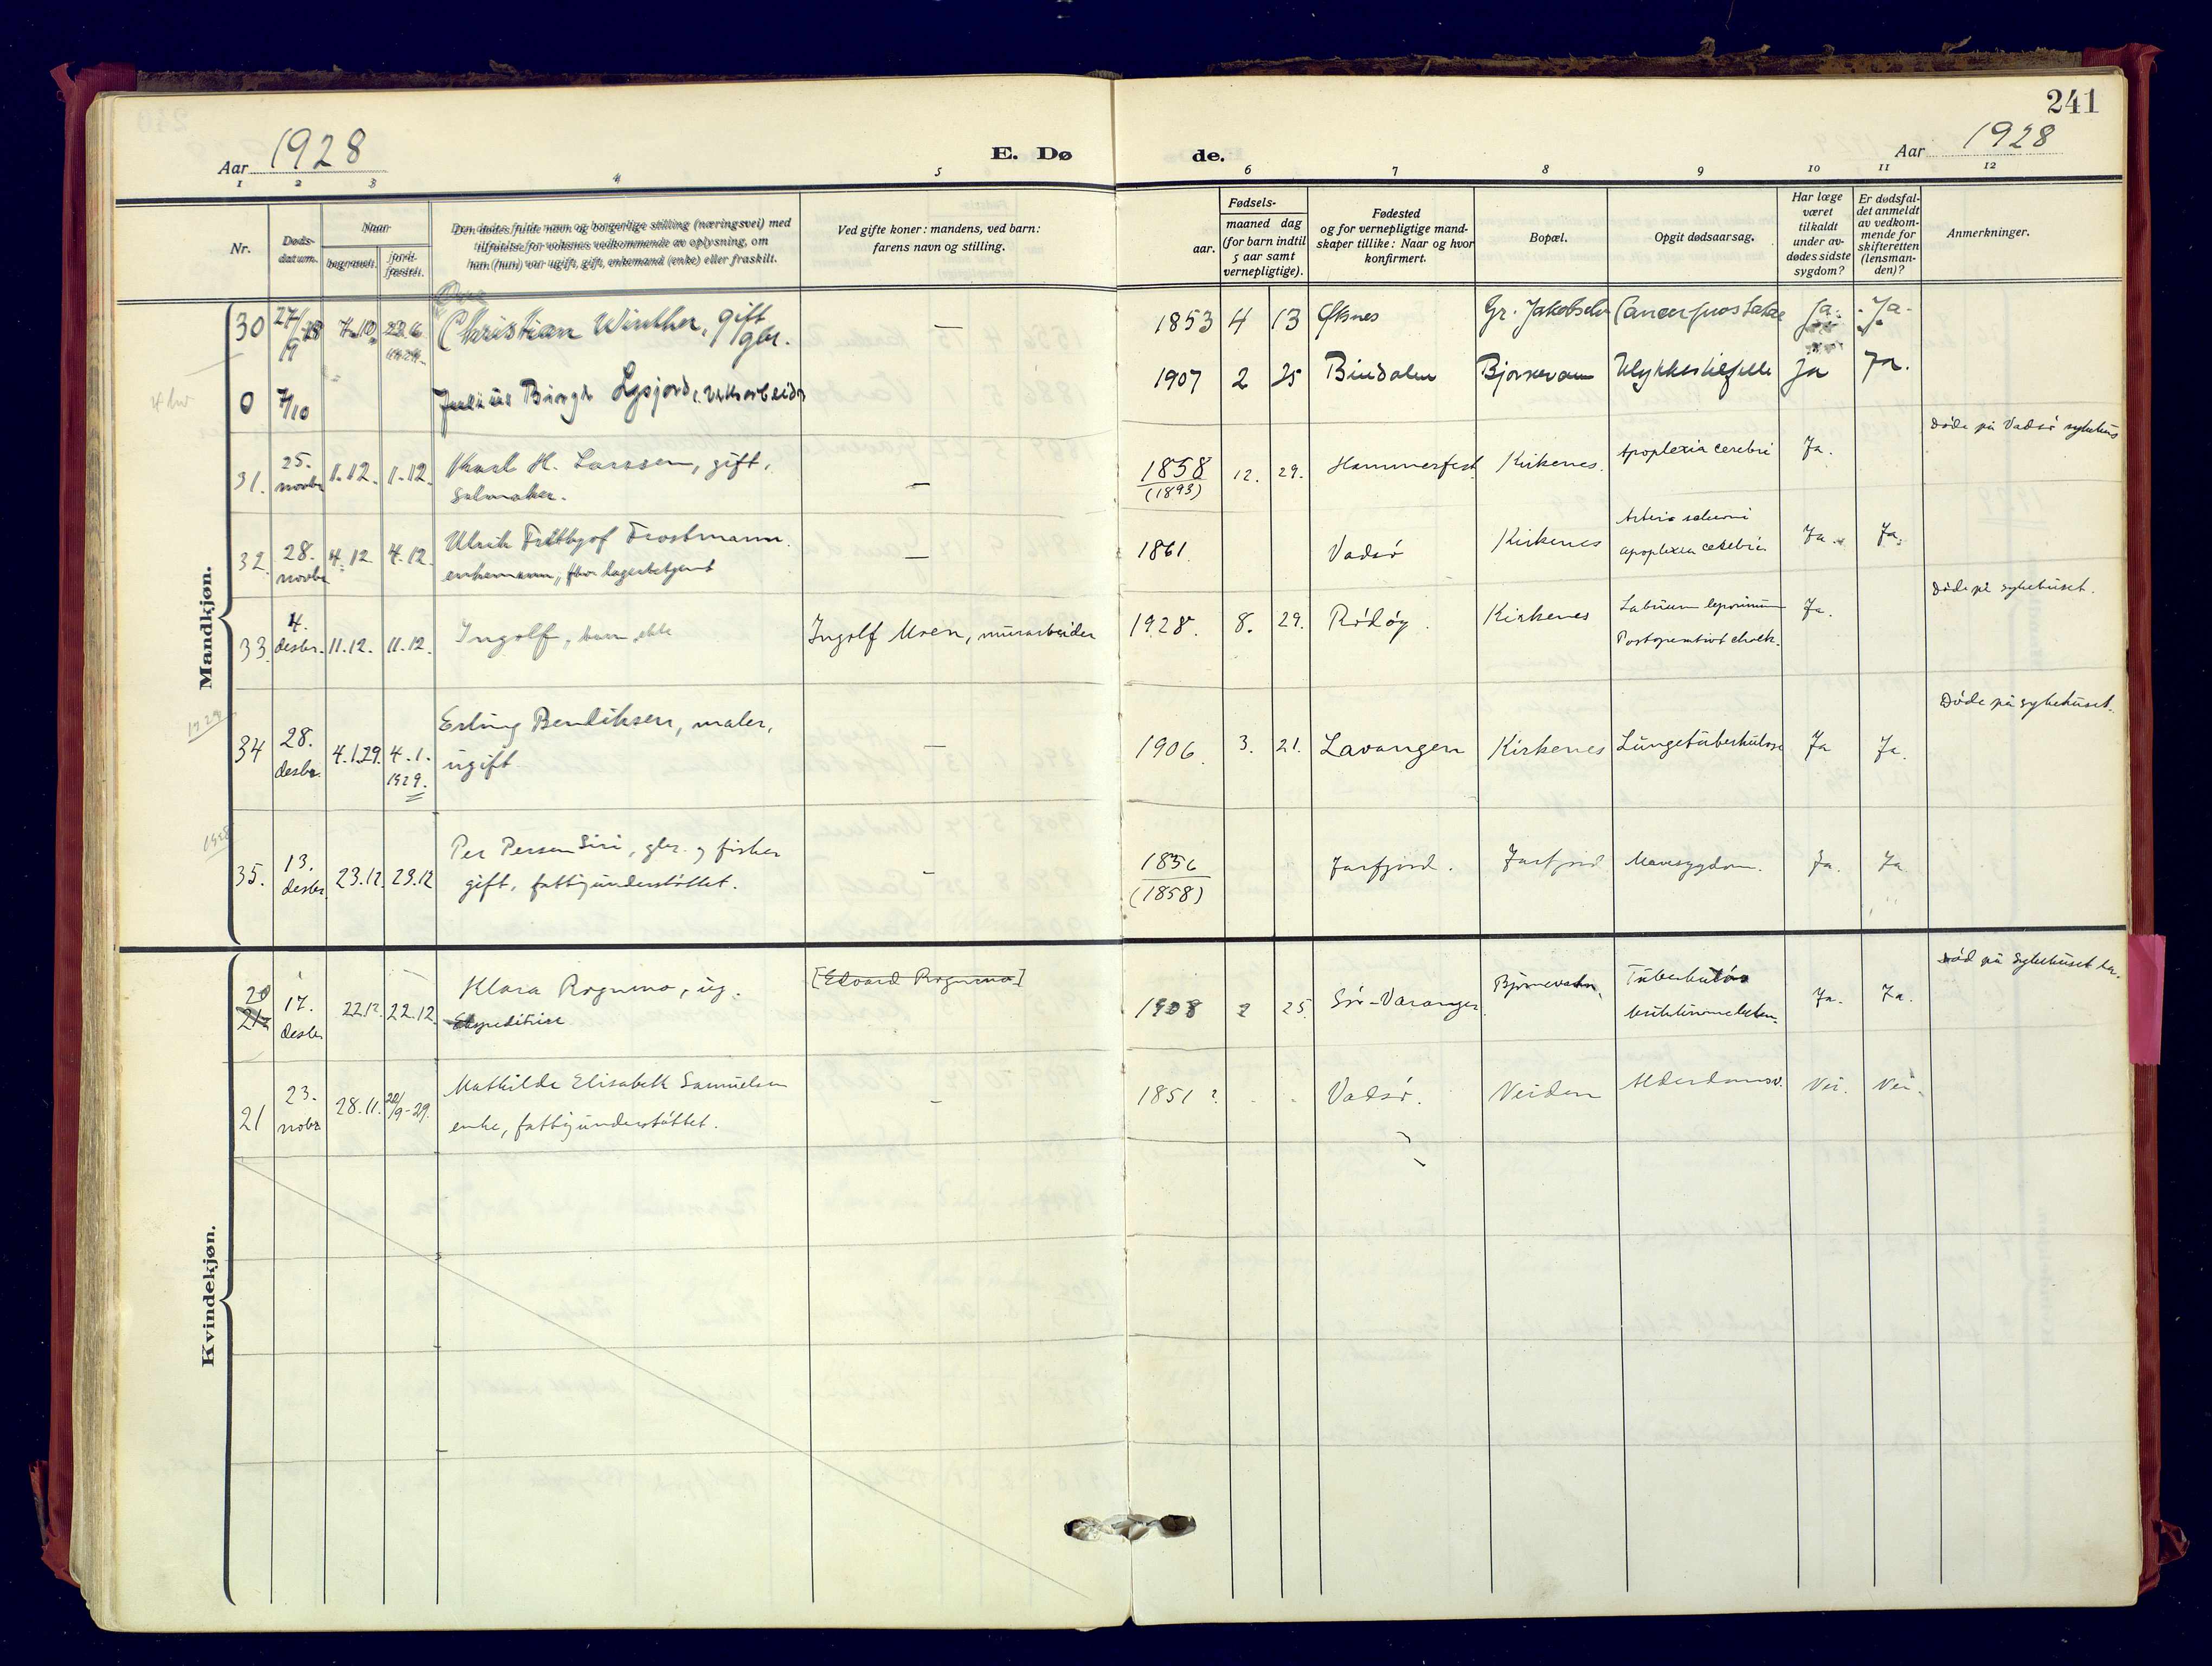 241
Aar 1928
E. Dø
de.
Aar 1928
1 2 3 4 5 6 7 8 9 10 11 12
Nr.
Døds-
datum.
Naar
begravet.
jord-
fæstet.
Den dødes fulde navn og borgerlige stilling (næringsvei) med
tilføielse for voksnes vedkommende av oplysning, om
han (hun) var ugift, gift, enkemand (enke) eller fraskilt.
Ved gifte koner: mandens, ved barn:
farens navn og stilling.
Fødsels-
aar.
maaned dag
(for barn indtil
5 aar samt
vernepligtige).
Fødested
og for vernepligtige mand-
skaper tillike: Naar og hvor
konfirmert.
Bopæl.
Opgit dødsaarsag.
Har læge
været
tilkaldt
under av-
dødes sidste
sygdom?
Er dødsfal-
det anmeldt
av vedkom-
mende for
skifteretten
(lensman-
den)?
Anmerkninger.
Mandkjøn.
30 27/9 Christian Winther, gift gbr. — 1853 4 13 Øksnes Gr. Jakobselv Cancer prostatae Ja. Ja.
0 7/10 Julius Birger Lysjord, verksarbeider 1907 2 25 Bindalen Bjørnevann Ulykkestilfelle Ja Ja.
31. 25. novbr 1.12. 1.12. Karl H. Larssen, gift,
salmaker. — 1858 (1893) 12. 29. Hammerfest Kirkenes. Apoplexia cerebri Ja. Døde på Vadsø sykehus
32. 28. novbr 4.12 4.12. Ulrik Frithjof Frostmann.
enkemann, lagerbetjent — 1861. Vadsø Kirkenes apoplexia cerebri. Ja. Ja.
33. 4. desbr. 11.12. 11.12. Ingolf, barn, ekte Ingolf Moen, murarbeider 1928. 8. 29. Rødøy. Kirkenes Labium leporinum
Postoperativt chock. Ja. Døde på sykehuset.
1929
34 28. desbr. 4.1.29. 4.1. 1929. Erling Bendiksen, maler,
ugift. — 1906. 3. 21. Lavangen Kirkenes Lungetuberkulose Ja Ja. Døde på sykehuset.
1928
35. 13. desbr. 23.12. 23.12 Per Persen Siri, gbr. og fisker
gift, fattigunderstøttet. - 1856 (1858) Jarfjord. Jarfjord Mavesygdom. Ja. Ja
Kvindekjøn.
20 21 17. desbr 22.12. 22.12. Klara Rognmo, ug.
Ekspeditrise [Edvard Rognmo] 1908 2 25. Sør-Varanger Bjørnevatn. Tuberkuløs Ja. Ja. død på sykehuset her.
21 23. novbr 28.11. 22/9-29. Mathilde Elisabeth Samuelsen
enke, fattigunderstøttet. - 1851? Vadsø. Neiden Alderdomsv. Nei. Nei.